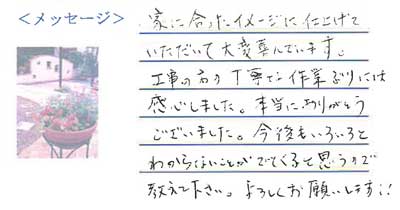 <メッセージ>
家に合ったイメージに仕上げて
いただいて大変喜んでいます。
工事の方の丁寧な作業ぶりには
感心しました。本当にありがとう
ございました。今後もいろいろと
わからないことがでてくると思うので
教えて下さい。よろしくお願いします!!